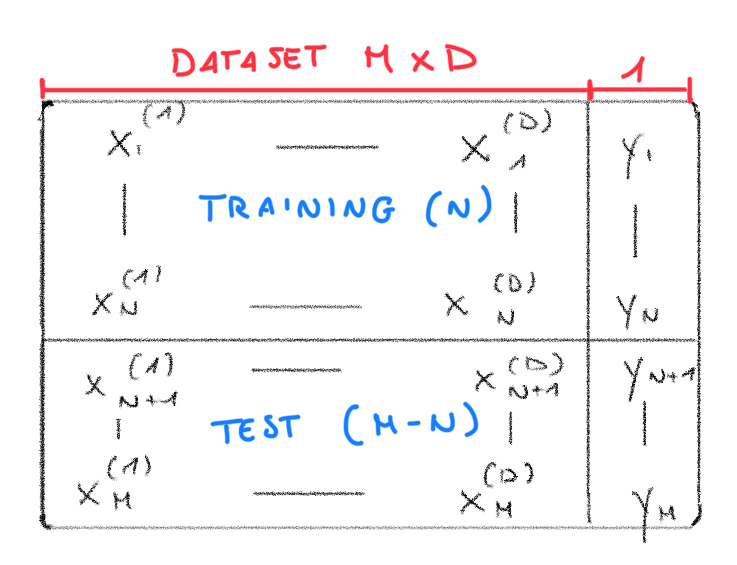 DATASET M x D 1
X₁⁽¹⁾ — X₁⁽ᴰ⁾ y₁
| TRAINING (N) | |
X_N^(1) — X_N^(D) y_N
X_N+1^(1) — X_N+1^(D) y_N+1
| TEST (M-N) | |
X_M^(1) — X_M^(D) y_M